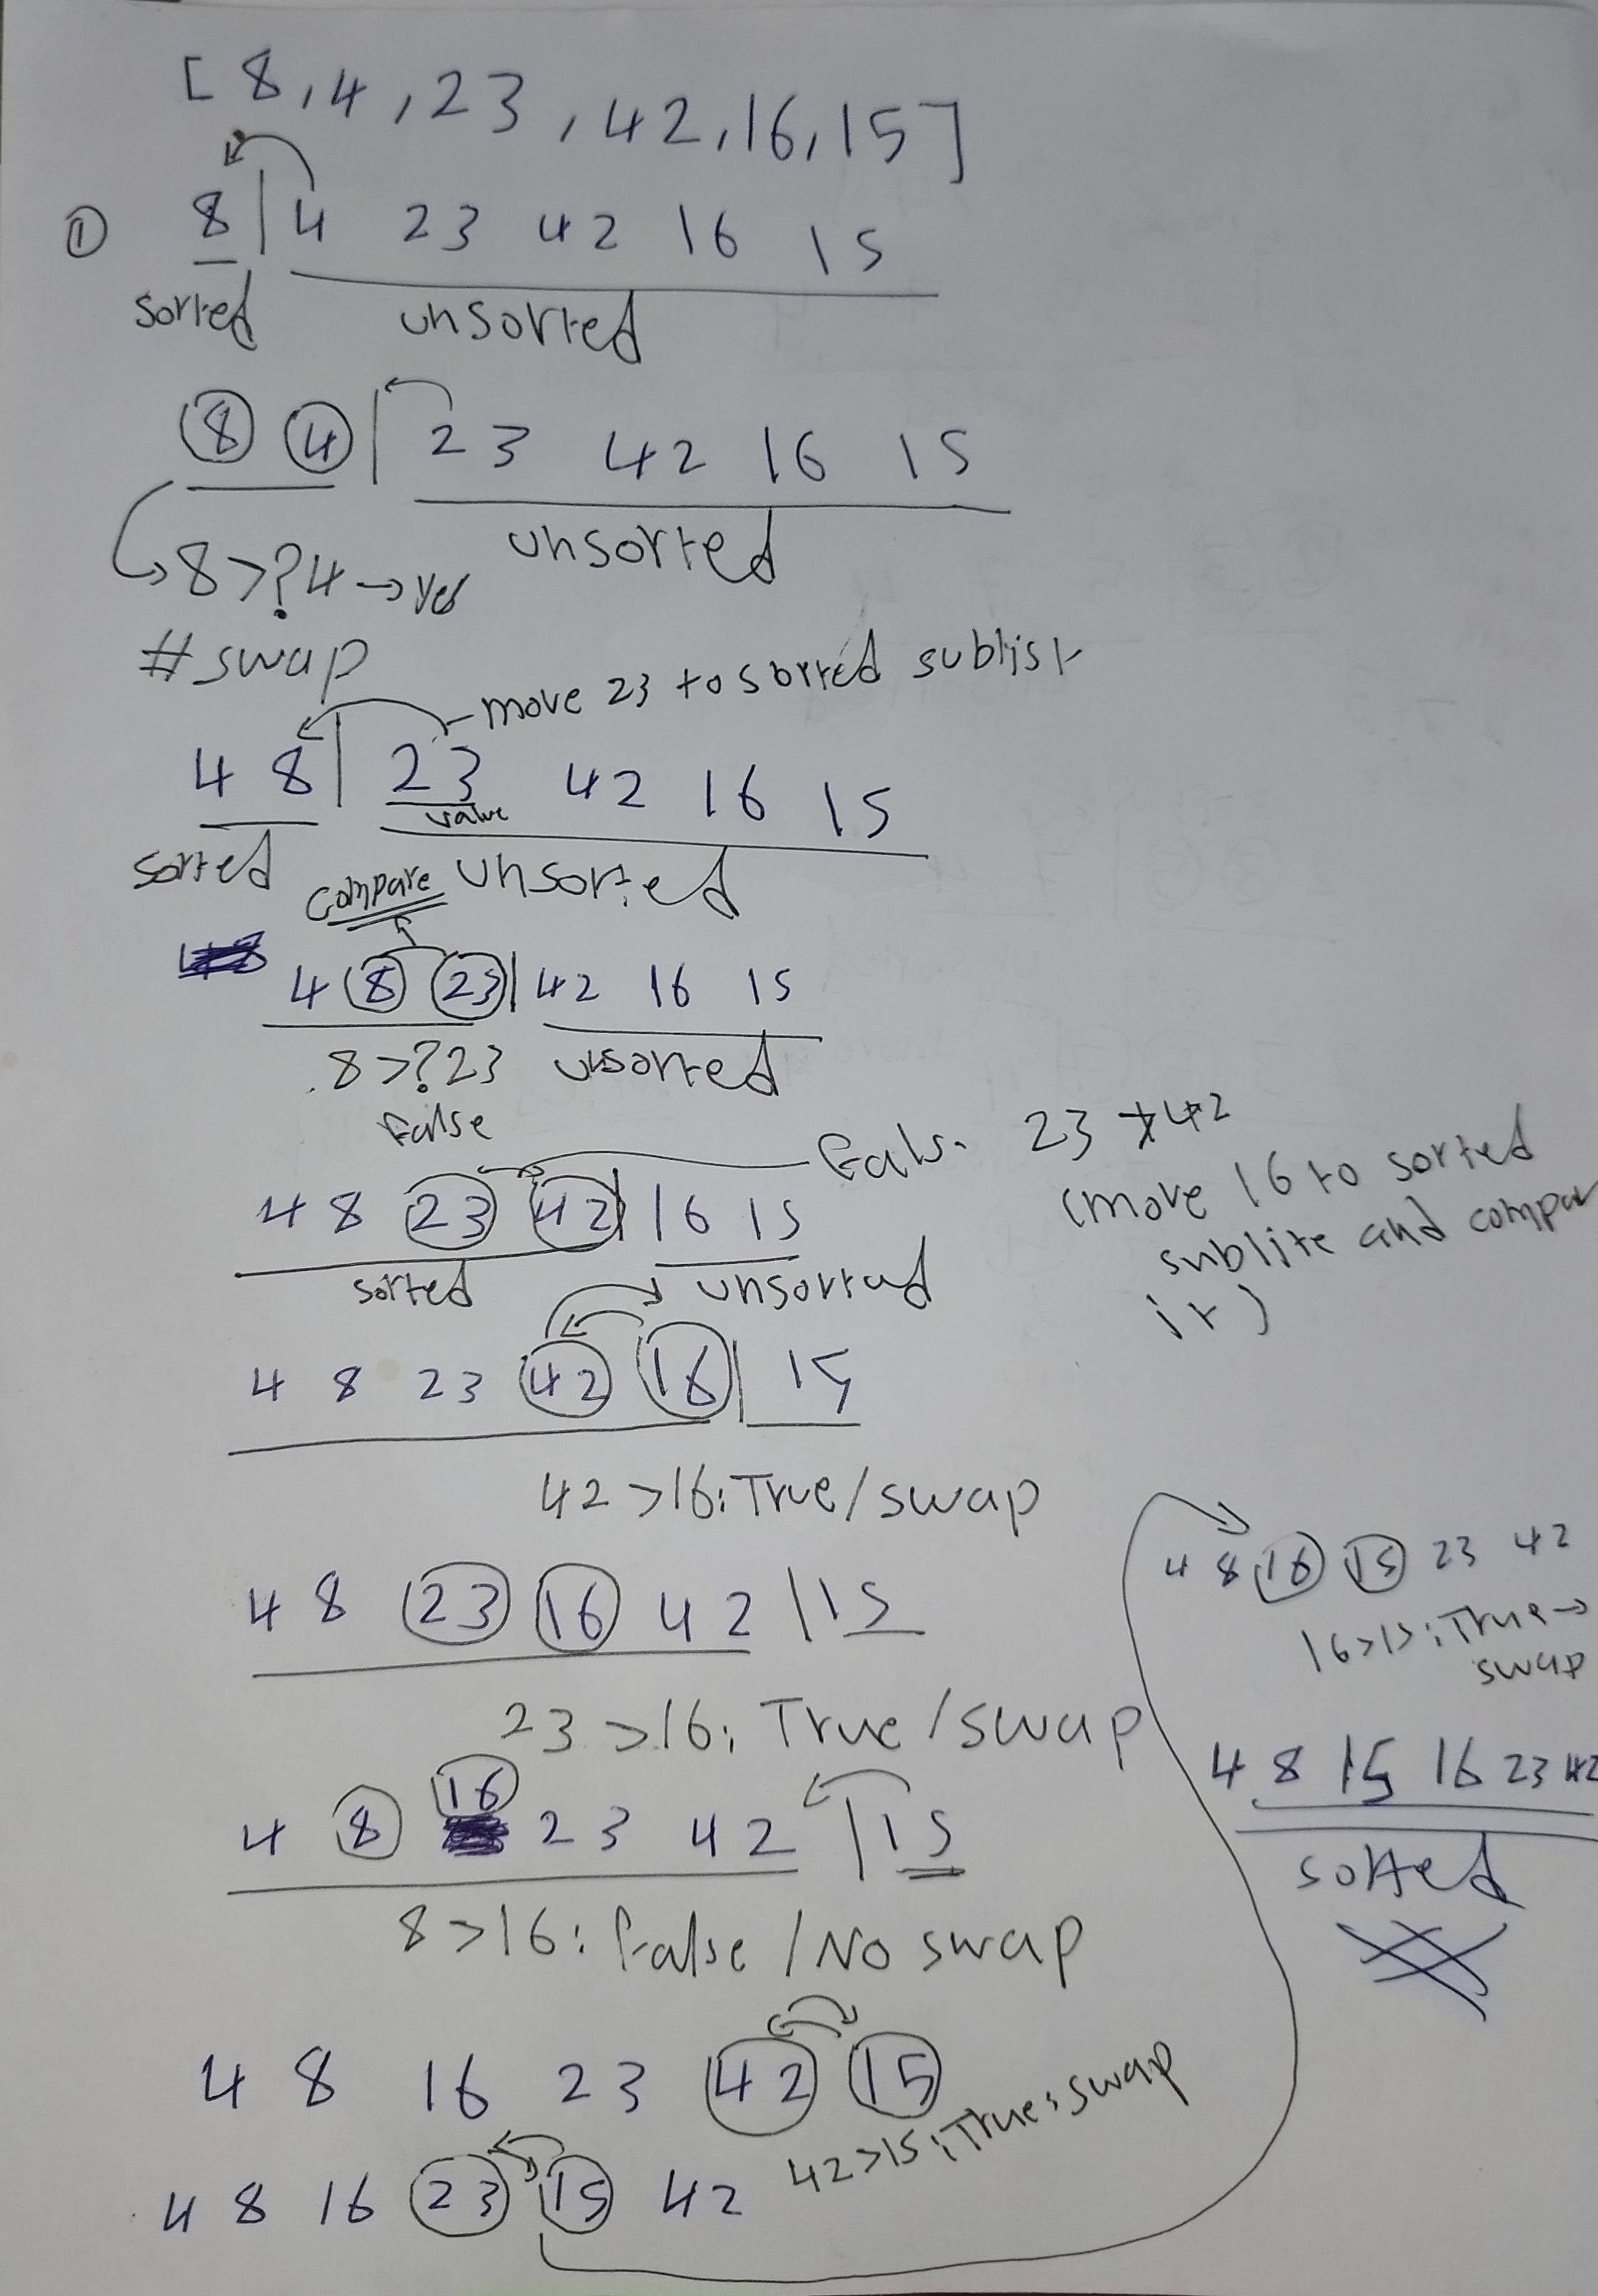 [8,4,23,42,16,15]
① 8 | 4 23 42 16 15
sorted unsorted
8 4 | 23 42 16 15
unsorted
8>?4→yes
#swap
move 23 to sorted sublist
4 8 | 23 42 16 15
value
sorted unsorted
compare
4 8 23 | 42 16 15
8>?23 unsorted
False
Fals. 23 ≯ 42
(move 16 to sorted
sublite and compar
it)
4 8 23 42 | 16 15
sorted unsorted
4 8 23 42 16 | 15
42>16:True/swap
4 8 23 16 42 | 15
23>16: True/swap
16
4 8 23 42 | 15
8>16: False/No swap
4 8 16 23 42 15
42>15:True:swap
4 8 16 23 15 42
4 8 16 15 23 42
16>15:True→
swap
4 8 15 16 23 42
sorted